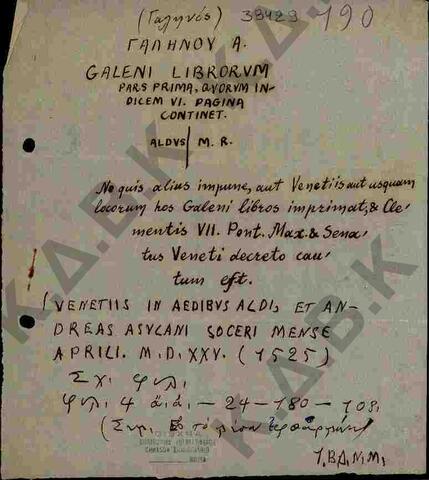 (Γαληνός) 39429 190
ΓΑΛΗΝΟΥ Α.
GALENI LIBRORVM
PARS PRIMA, QVORVM IN-
DICEM VI. PAGINA
CONTINET.
ALDVS | M. R.
Ne quis alius impune, aut Venetiis aut usquam
locorum hos Galeni libros imprimat, & Cle-
mentis VII. Pont. Max. & Sena-
tus Veneti decreto cau-
tum est.
VENETIIS IN AEDIBVS ALDI, ET AN-
DREAE ASVLANI SOCERI MENSE
APRILI. M.D.XXV. (1525)
Σχ. φυλ.
φυλ. 4 ἄ.ἀ. — 24 — 180 — 108.
(Σημ. τὸ
Ι.Β.Δ.Ν.Μ.
Κ.Δ.Β.Κ